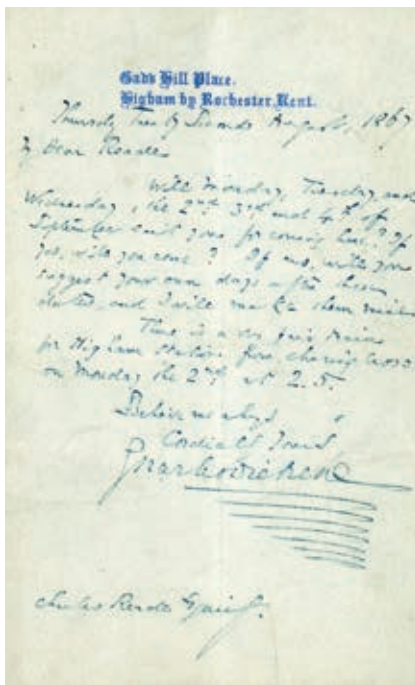 Gad's Hill Place.
Higham by Rochester, Kent.
Thursday Twenty Second August, 1867
My Dear Reade
Will Monday, Tuesday and
Wednesday, the 2nd 3rd and 4th of
September suit you for coming here? If
yes, will you come? If no, will you
suggest your own days after those
stated, and I will make them mine
There is a very fair train
for Higham Station from Charing Cross
on Monday the 2nd at 2.5.
Believe me always
Cordially Yours
Charles Dickens
Charles Reade Esquire.